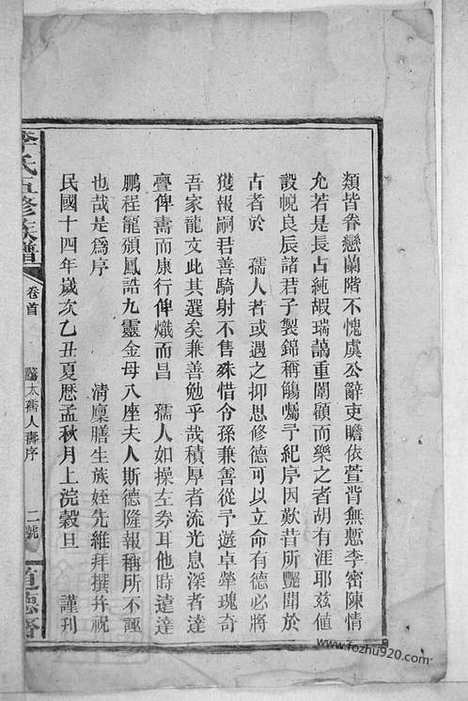 類皆眷戀蘭階不愧虞公辭吏瞻依萱背無慙李密陳情
允若是長占純嘏瑞藹重闈顧而樂之者胡有涯耶茲値
設帨良辰諸君子製錦稱觴囑予紀序因歎昔所豔聞於
古者於　孺人若或遇之抑思修德可以立命有德必將
獲報嗣君善騎射不售殊惜令孫兼善從予遊卓犖瑰奇
吾家龍文此其選矣兼善勉乎哉積厚者流光息深者達
亹俾壽而康行俾熾而昌　孺人如操左劵耳他時達達
鵬程龍頒鳳誥九靈金母八座夫人斯德隆報稱所不誣
也哉是爲序
清廩膳生族姪先維拜撰并祝
民國十四年歲次乙丑夏歷孟秋月上浣穀旦　謹刊
李氏五修族譜
卷首
太孺人壽序
二號
道德
www.fozhu920.com